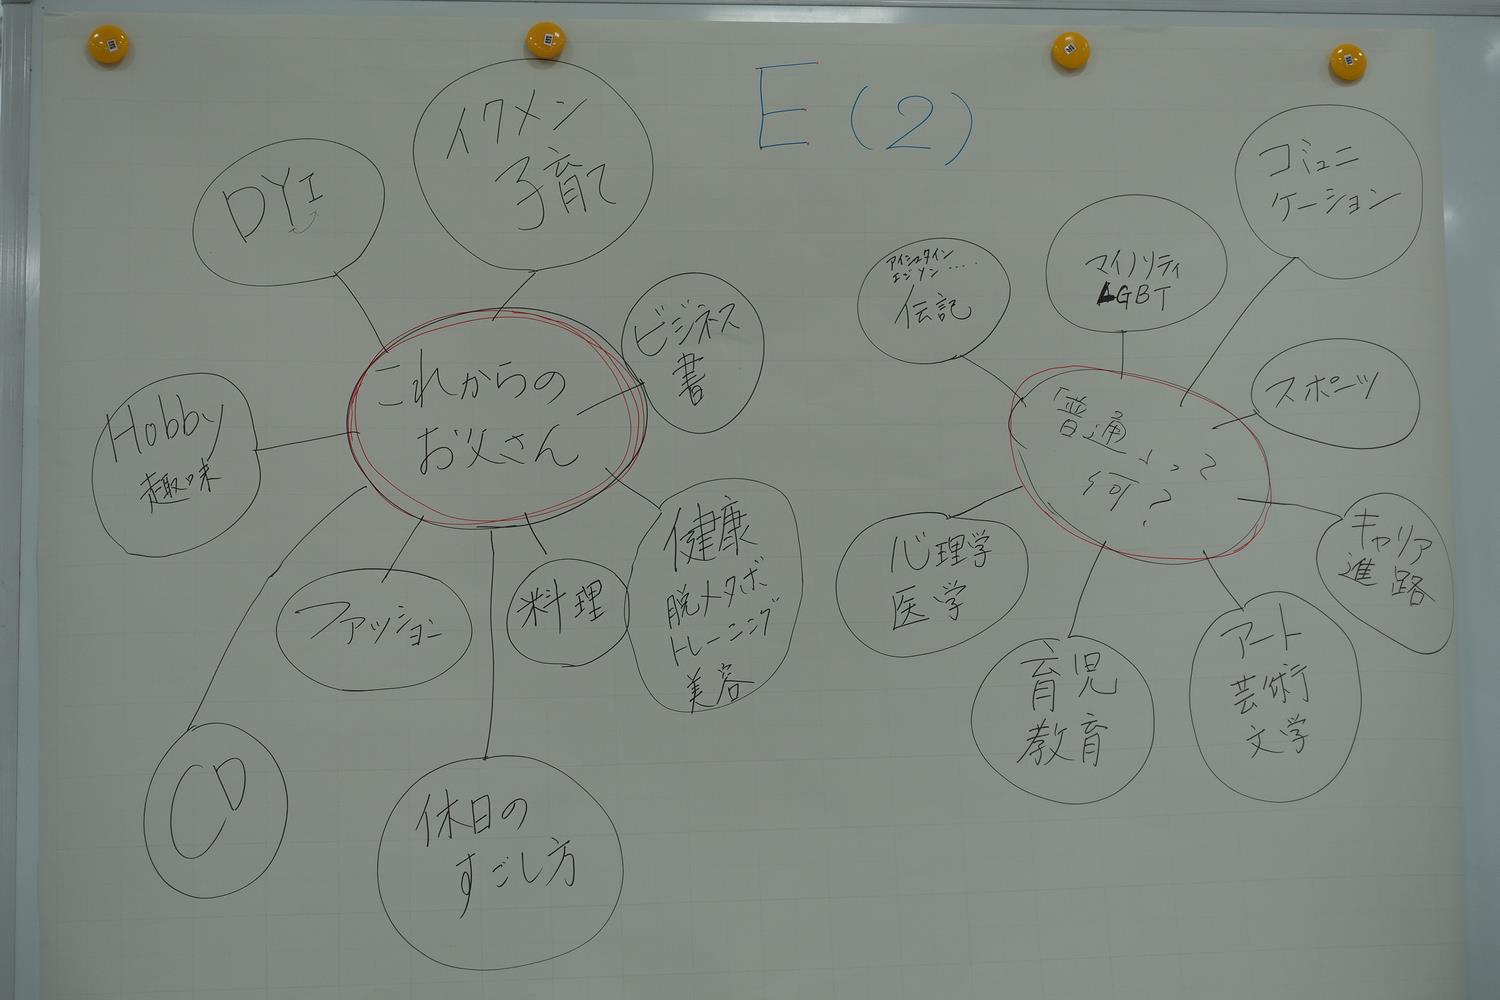 E (2)
イクメン
子育て
DYI
これからの
お父さん
ビジネス
書
Hobby
趣味
健康
脱メタボ
トレーニング
美容
料理
ファッション
CD
休日の
すごし方
コミュニ
ケーション
マイノリティ
LGBT
アインシュタイン
エジソン ‥‥
伝記
スポーツ
「普通」って
何?
キャリア
進路
心理学
医学
育児
教育
アート
芸術
文学